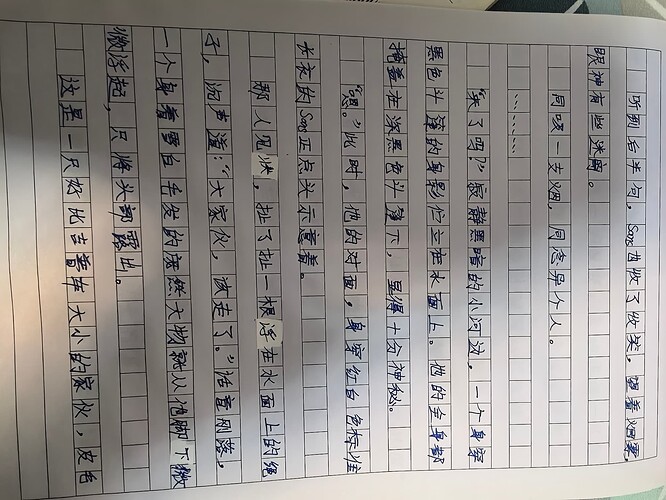 听到后半句，Sans也收了收笑，望着烟雾，
眼神有些迷离。
同吸一支烟，同念异个人。
…………
“来了吗？”寂静黑暗的小河边，一个身穿
黑色斗篷的身影伫立在水面上。他的全身都
掩盖在深黑色斗篷下，显得十分神秘。
“嗯。”此时，他的对面，身穿红白色标准
大衣的Sans正点头示意着。
那人见状，扯了扯一根浮在水面上的绳
子，沉声道：“大家伙，该走了。”话音刚落，
一个身着雪白毛发的庞然大物就从他脚下微
微浮起，只将头部露出。
这是一只好比吉普车大小的家伙，皮毛